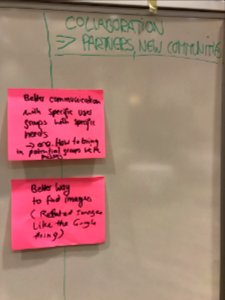 COLLABORATION
⇒ PARTNERS, NEW COMMUNITIES
Better communication
with specific user
groups with specific
needs
→ e.g. How to bring
in potential groups we're
missing
Better way
to find images
(Related Images
Like the Google
thing)